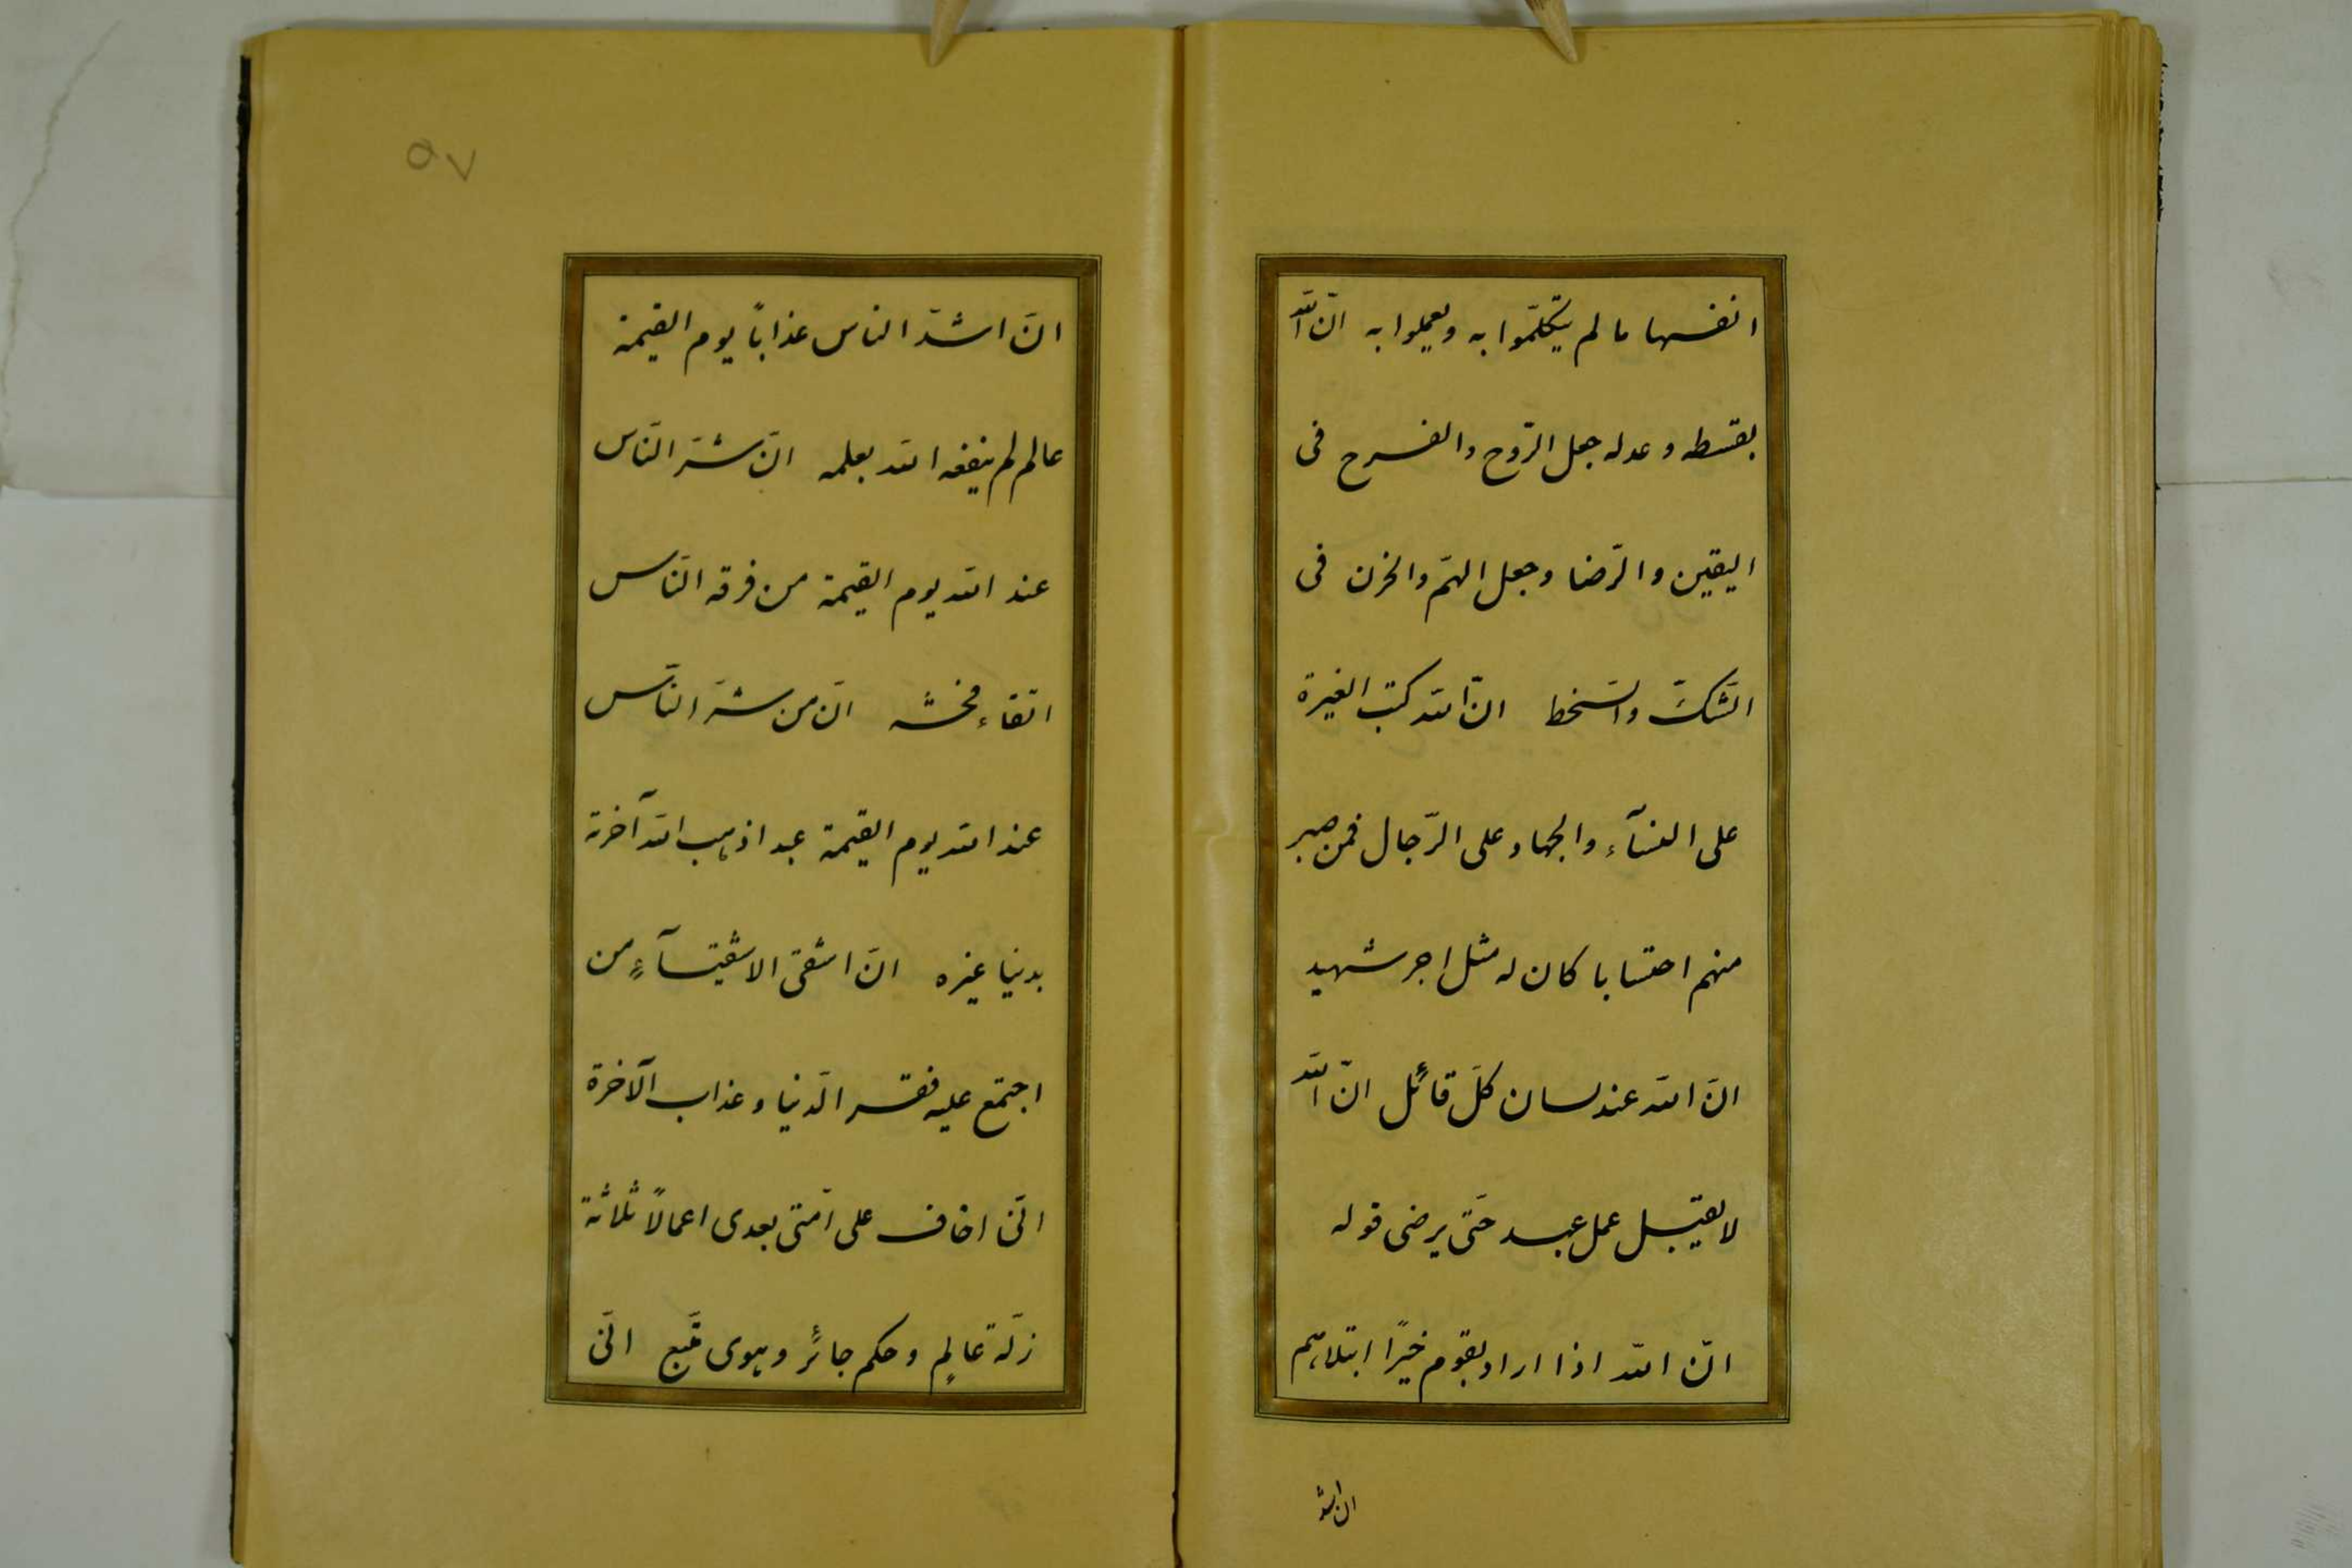 انفسها ما لم يتكلّموا به ويعملوا به انّ الله
بقسطه وعدله جعل الرّوح والفرح فى
اليقين والرّضا وجعل الهمّ والحزن فى
الشّكّ والسّخط انّ الله كتب الغيرة
على النسآء والجهاد على الرّجال فمن صبر
منهم احتسابا كان له مثل اجر شهيد
انّ الله عند لسان كلّ قائل انّ الله
لا يقبل عمل عبد حتّى يرضى قوله
انّ الله اذا اراد بقوم خيرًا ابتلاهم
ان اشد
٥٧
انّ اشدّ الناس عذاباً يوم القيمة
عالم لم ينفعه الله بعلمه انّ شرّ النّاس
عند الله يوم القيمة من فرقه النّاس
اتقاء فحشه انّ من شرّ النّاس
عند الله يوم القيمة عبد اذهب الله آخرته
بدنيا غيره انّ اشقى الاشقيآءِ من
اجتمع عليه فقر الدّنيا وعذاب الآخرة
انّى اخاف على امّتى بعدى اعمالاً ثلاثة
زلّة عالمٍ وحكم جائر وهوى متّبع انّى